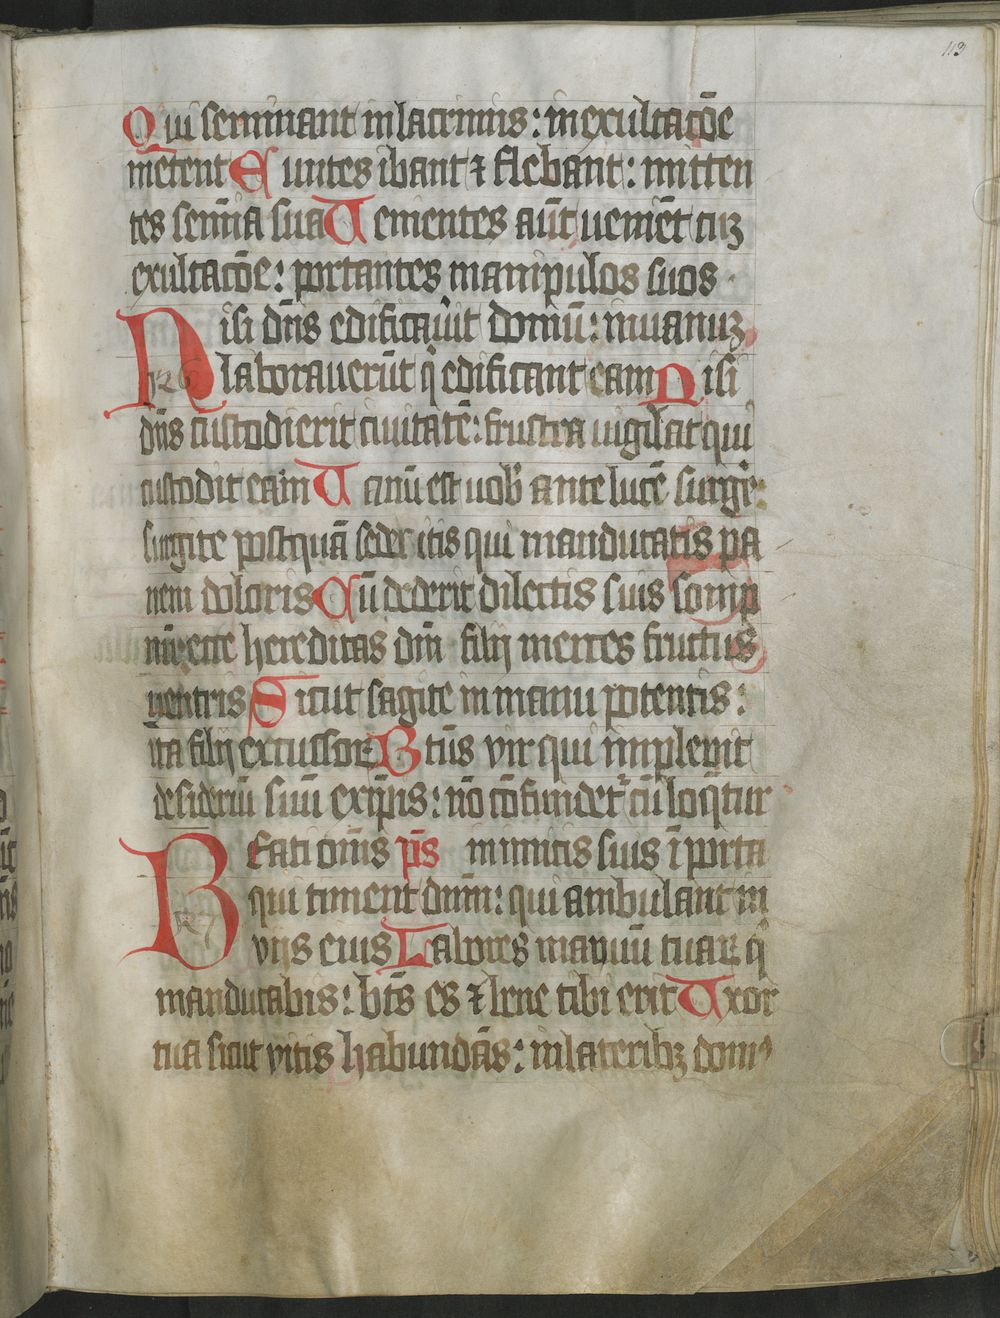 113
Qui seminant in lacrimis: in exultac̄õe
metent Euntes ibant ⁊ flebant: mitten
tes sem̄ia sua Uenientes aūt uenient cuꝫ
exultac̄õe: portantes manipulos suos
Nisi dn̄s edificau̾it domū: in uanuꝫ
126 laborauerūt q̄ edificant eam Nisi
dn̄s custodierit ciuitatē: frustra uigilat qui
custodit eam Uanū est uob̾ ante lucē surge̾:
surgite postquā sederitis qui manducatis pa
nem doloris Cū dederit dilectis suis somp
nū: ecce hereditas dn̄i filij merces fructus
uentris Sicut sagite in manu potentis:
ita filij excussoꝝ Btūs vir qui impleuit
desideriū suū ex ip̄is: nō cōfundet̾ cū loq̄tur
Beati om̄s p̄s inimicis suis ī porta
qui timent dnm̄: qui ambulant in
127 vijs eius Labores manuū tuaꝝ q̄
manducabis: bt̄s es ⁊ bene tibi erit Uxor
tua sicut vitis habundās: in lateribꝫ domꝰ